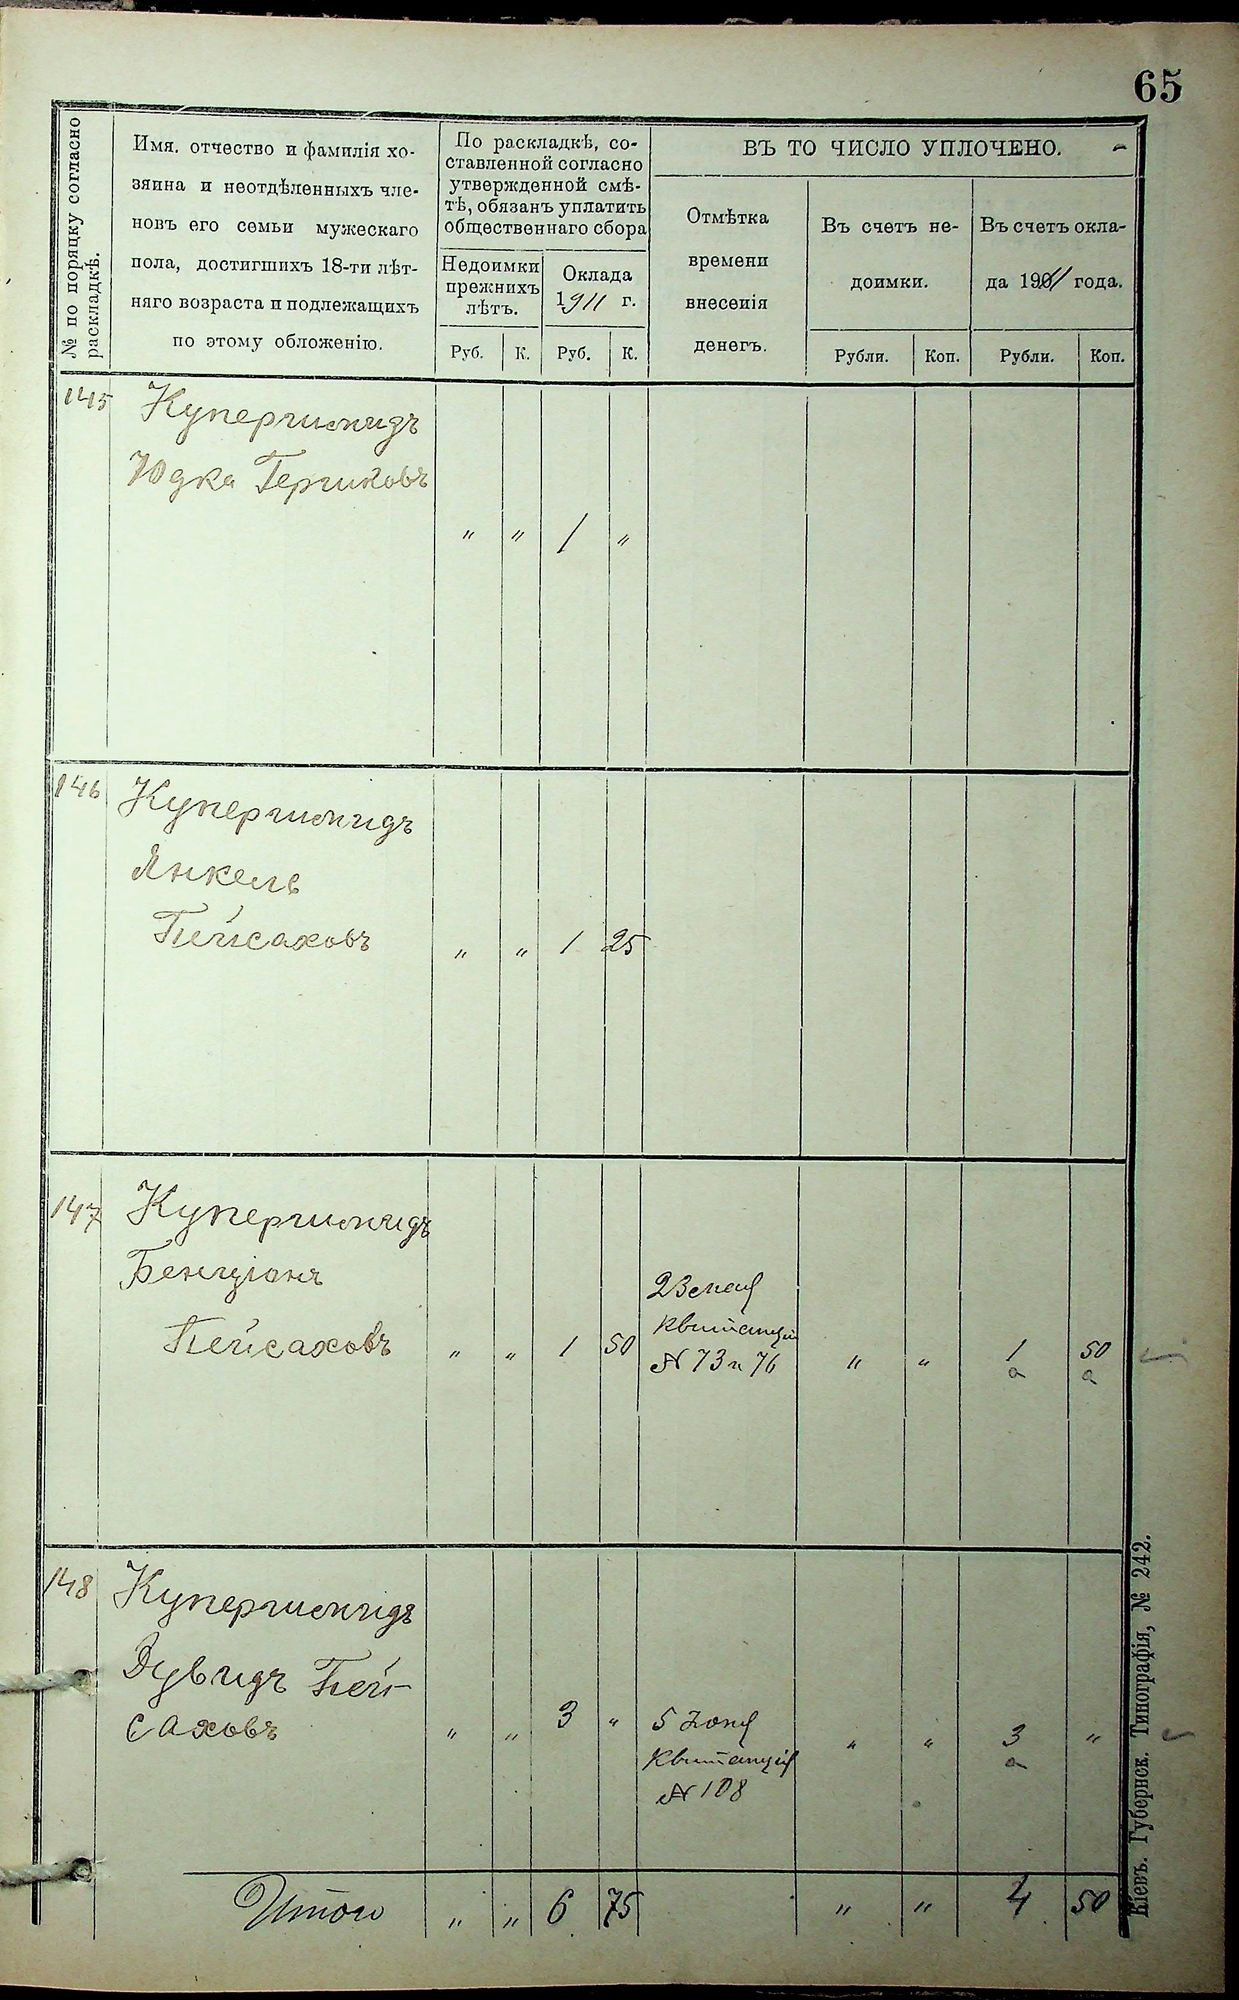 65
№ по порядку согласно
раскладкѣ.
Имя, отчество и фамилія хо-
зяина и неотдѣленныхъ чле-
новъ его семьи мужескаго
пола, достигшихъ 18-ти лѣт-
няго возраста и подлежащихъ
по этому обложенію.
По раскладкѣ, со-
ставленной согласно
утвержденной смѣ-
тѣ, обязанъ уплатить
общественнаго сбора
Недоимки
прежнихъ
лѣтъ.
Оклада
1911 г.
Руб. К. Руб. К.
ВЪ ТО ЧИСЛО УПЛОЧЕНО.
Отмѣтка
времени
внесенія
денегъ.
Въ счетъ не-
доимки.
Въ счетъ окла-
да 1911 года.
Рубли. Коп. Рубли. Коп.
145 Купершмидъ
Юдка Гершковъ
" " 1 "
146 Купершмидъ
Янкель
Пейсаховъ " " 1 25
147 Купершмидъ
Бенціанъ
Пейсаховъ " " 1 50
23 мая
квитанціи
№ 73 и 76 " " 1 50
148 Купершмидъ
Дувидъ Пей-
саховъ " " 3 "
5
квитанція
№ 108 " " 3 "
Итого " " 6 75 " " 4 50
Кіевъ. Губернск. Типографія, № 242.